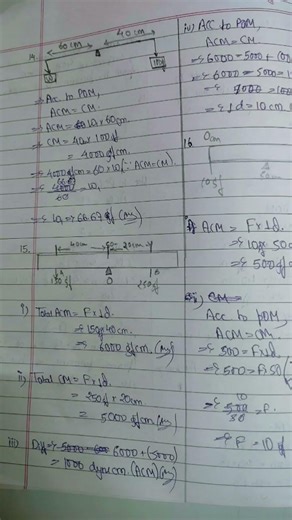 60cm 40cm
14.
100gf
⇒ Acc to POM,
ACM = CM.
⇒ ACM = 60 cm.
⇒ CM = 40 x 100gf
= 4000gf cm.
⇒ 4000gf cm = 60 x (∵ ACM = CM).
66.67
⇒ 4000
60
⇒ 66.67gf (Ans)
15. 40cm 20cm
A O B
150gf 250gf
i) Total ACM = F x ⊥d.
⇒ 150gf x 40cm.
⇒ 6000 gfcm. (Ans)
ii) Total CM = F x ⊥d.
= 250gf x 20cm
= 5000 gfcm (Ans)
iii) Diff ⇒ 6000 + (5000)
= 1000 dyne cm. (ACM) (Ans)
iv) Acc to POM,
ACM = CM
⇒ 6000 = 5000 +
⇒ 6000 - 5000 =
⇒ 1000 =
⇒ ⊥d = 10cm
16. 0cm
50cm
10gf
i) ACM = F x ⊥d.
⇒ 10gf x 50
⇒ 500gf
ii) CM =
Acc to POM,
ACM = CM
⇒ 500 = F x ⊥d.
⇒ 500 = F x 50
10
⇒ 500 = F.
50
⇒ F = 10 gf